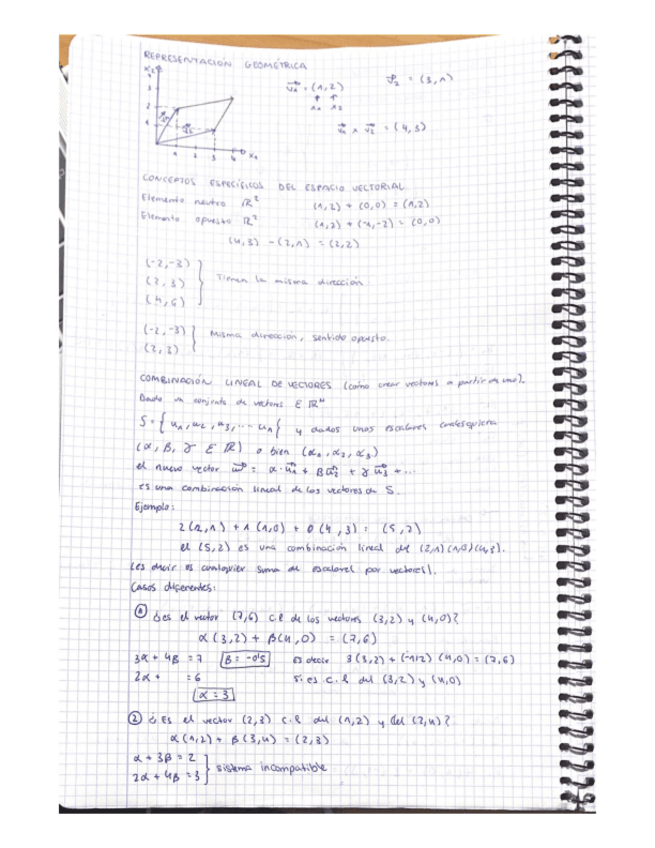 REPRESENTACIÓN GEOMÉTRICA
x₂
v₁ = (1,2)  v₂ = (3,1)
x₁ x₂
v₁ + v₂ = (4,3)
1 2 3 4 x₁
CONCEPTOS ESPECÍFICOS DEL ESPACIO VECTORIAL
Elemento neutro ℝ²  (1,2) + (0,0) = (1,2)
Elemento opuesto ℝ²  (1,2) + (-1,-2) = (0,0)
(4,3) - (2,1) = (2,2)
(-2,-3)
(2,3) } Tienen la misma dirección
(4,6)
(-2,-3)
(2,3) } Misma dirección, sentido opuesto.
COMBINACIÓN LINEAL DE VECTORES (cómo crear vectores a partir de uno).
Dado un conjunto de vectores E ℝᴺ
S = { u₁, u₂, u₃, ... uₙ } y dados unos escalares cualesquiera
(α, β, γ E ℝ) o bien (α₁, α₂, α₃)
el nuevo vector w = α·u₁ + βu₂ + γu₃ + ...
es una combinación lineal de los vectores de S.
Ejemplo:
2(2,1) + 1(1,0) + 0(4,3) = (5,2)
el (5,2) es una combinación lineal del (2,1)(1,0)(4,3).
(es decir es cualquier suma de escalares por vectores).
Casos diferentes:
① ¿es el vector (7,6) c.l de los vectores (3,2) y (4,0)?
α(3,2) + β(4,0) = (7,6)
3α + 4β = 7  β = -0'5  es decir 3(3,2) + (-1/2)(4,0) = (7,6)
2α + = 6  si es c.l del (3,2) y (4,0)
α = 3
② ¿Es el vector (2,3) c.l del (1,2) y del (3,4)?
α(1,2) + β(3,4) = (2,3)
α + 3β = 2
2α + 4β = 3 } sistema incompatible